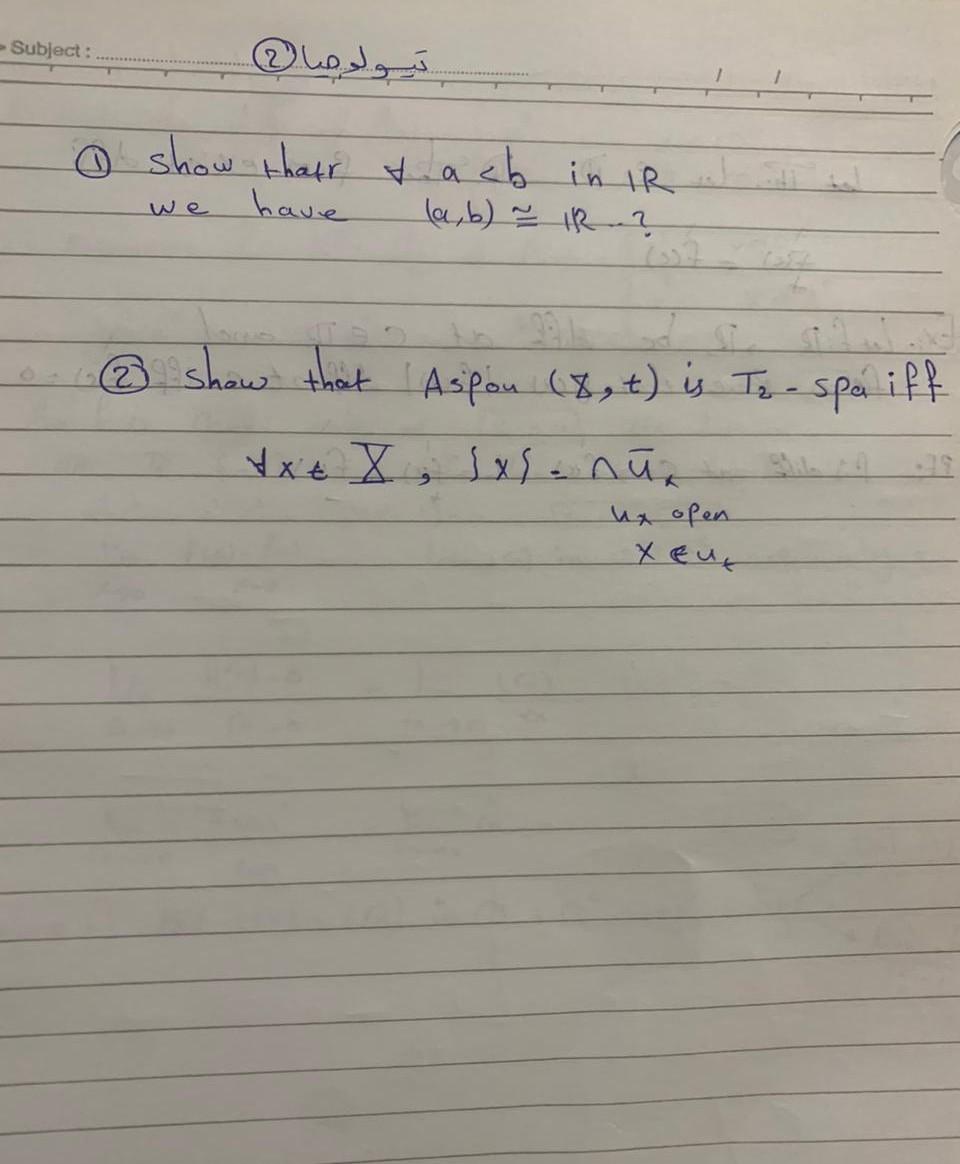 Subject : تبولوجيا ②
① show thatr ∀ a < b in IR
we have (a,b) ≅ IR ..?
② show that Aspau (X, t) is T₂ - spa iff
∀ x ∈ X , {x} = ∩ ū ₓ
uₓ open
x ∈ uₜ